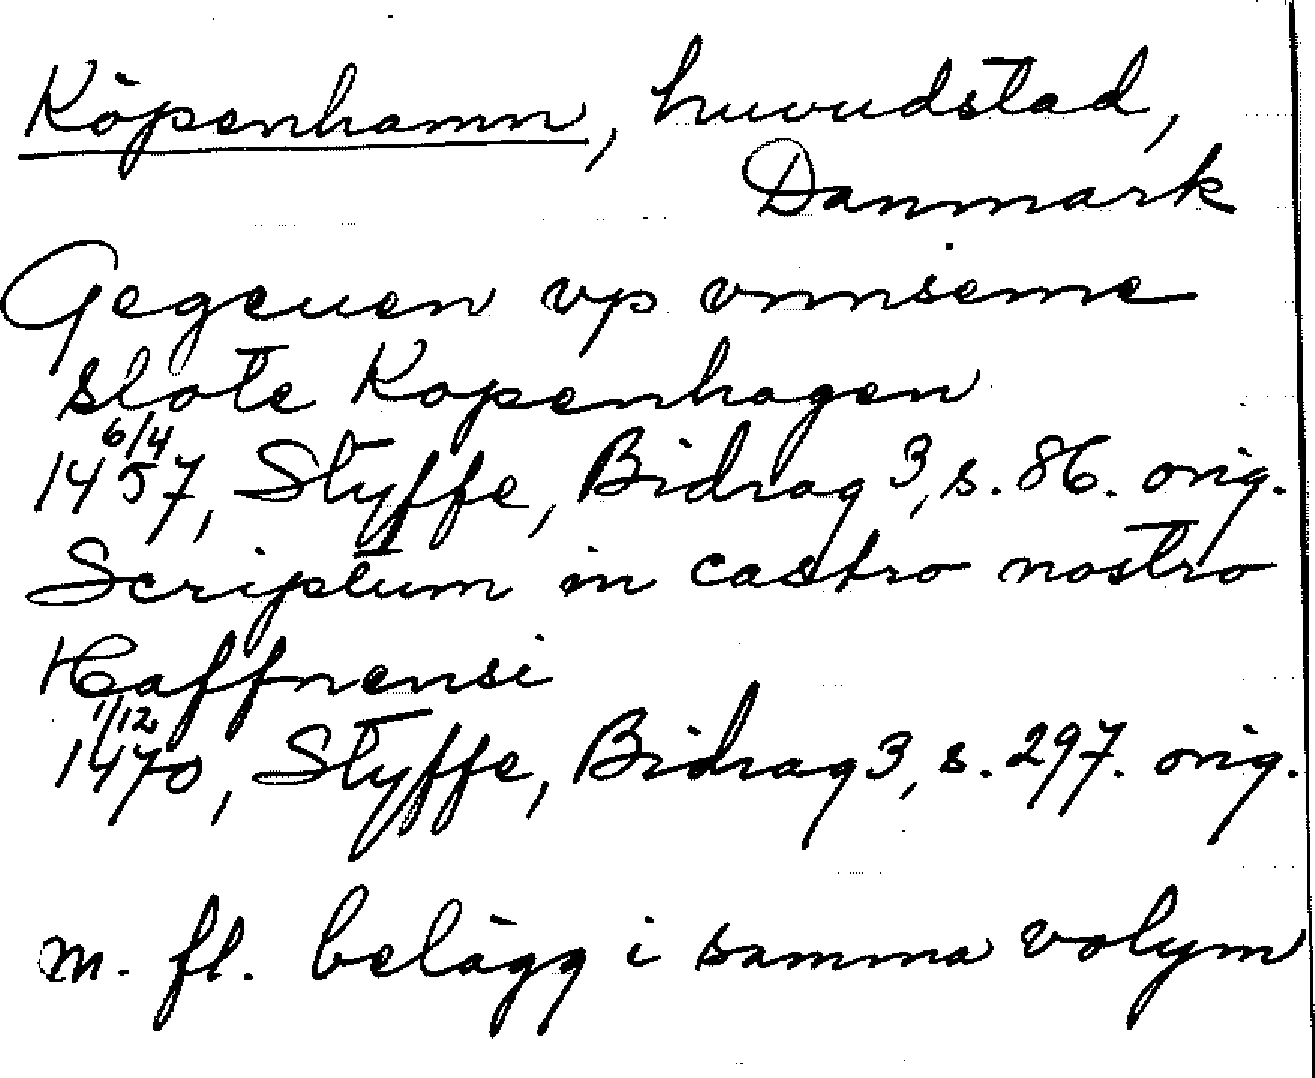 Köpenhamn, huvudstad,
Danmark
Gegeuen vp vnnseme
slote Kopenhagen
6/4
1457, Styffe, Bidrag 3, s. 86. orig.
Scriptum in castro nostro
Haffnensi
1/12
1470, Styffe, Bidrag 3, s. 297. orig.
m. fl. belägg i samma volym